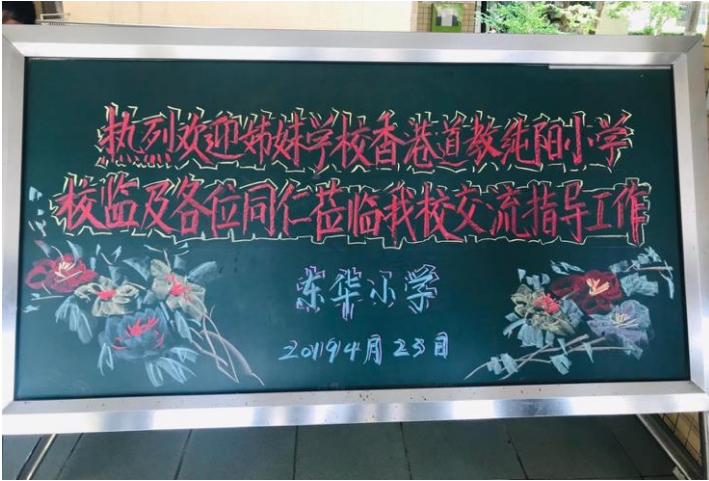 热烈欢迎姊妹学校香巷道教纯阳小学
校监及各位同仁莅临我校交流指导工作
东华小学
2019年4月23日